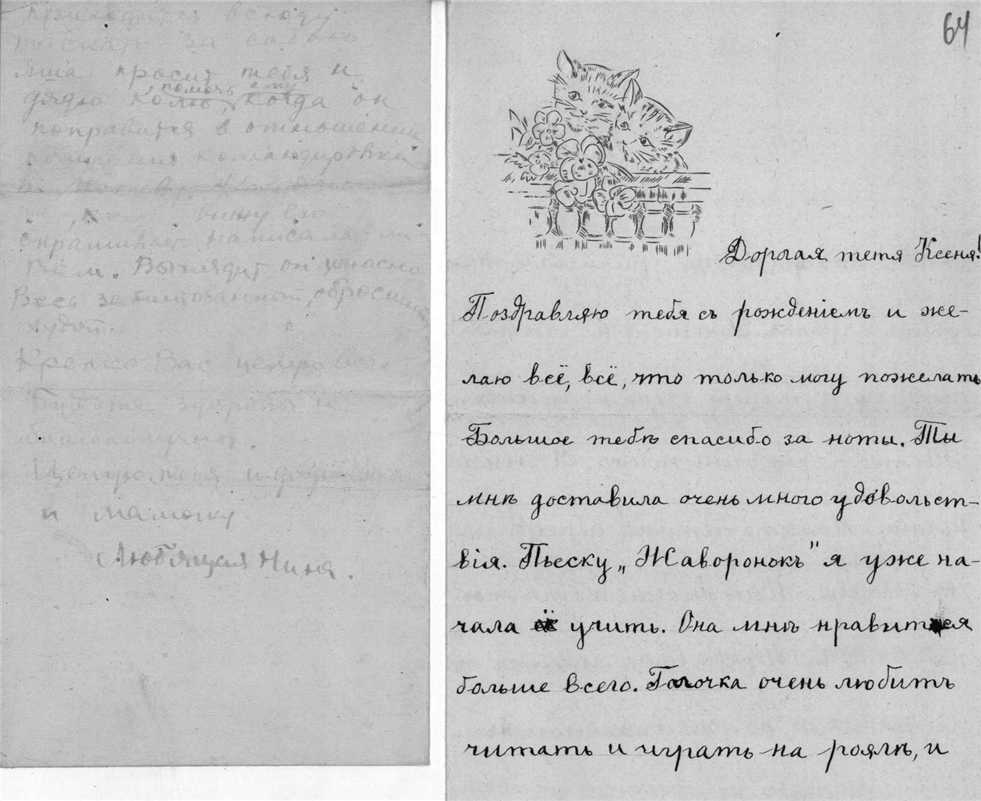 приходится всюду
таскать за собою
Яша просит тебя и
дядю Колю помочь ему когда он
поправится в отношении
командировки
В
вижу его
спрашивает написала ли
Вам. Выглядит он ужасно
Весь забинтованный, обросший,
худой.
Крепко Вас целую всех
Будьте здоровы и
благополучны.
Целую тетя и
и мамочку.
Любящая Нина.
64
Дорогая тетя Ксеня!
Поздравляю тебя съ рожденіемъ и же-
лаю всё, всё, что только могу пожелать
Большое тебѣ спасибо за ноты. Ты
мнѣ доставила очень много удовольст-
вія. Пьеску „Жаворонокъ" я уже на-
чала учить. Она мнѣ нравится
больше всего. Гогочка очень любитъ
читать и играть на роялѣ, и